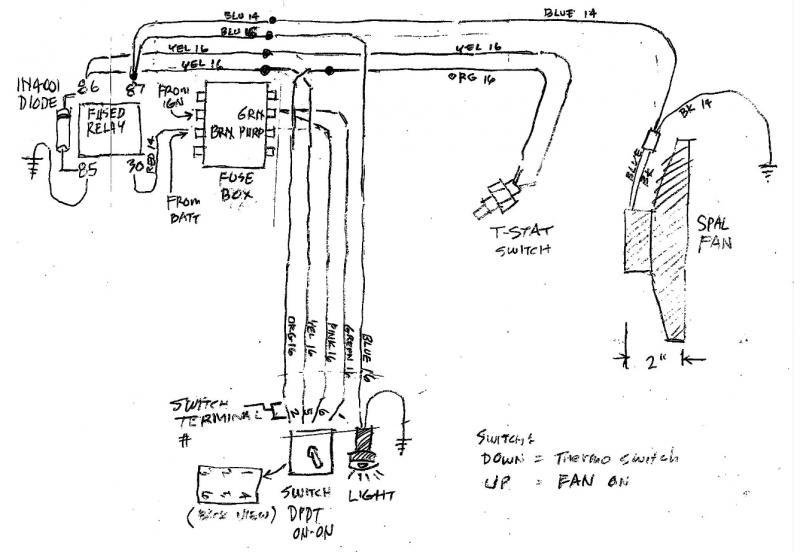 BLU 14
BLU 16
YEL 16
YEL 16
BLUE 14
YEL 16
ORG 16
BK 14
BLUE
BK
IN4001
DIODE
86
87
FUSED
RELAY
85
30
RED 14
FROM
IGN
GRN
BRN PURP
FUSE
BOX
FROM
BATT
T-STAT
SWITCH
SPAL
FAN
2"
ORG 16
YEL 16
PINK 16
GREEN 16
BLUE 16
SWITCH
TERMINAL
#
2
5
6
SWITCH
DPDT
ON-ON
LIGHT
(BACK VIEW)
SWITCH:
DOWN = THERMO SWITCH
UP = FAN ON